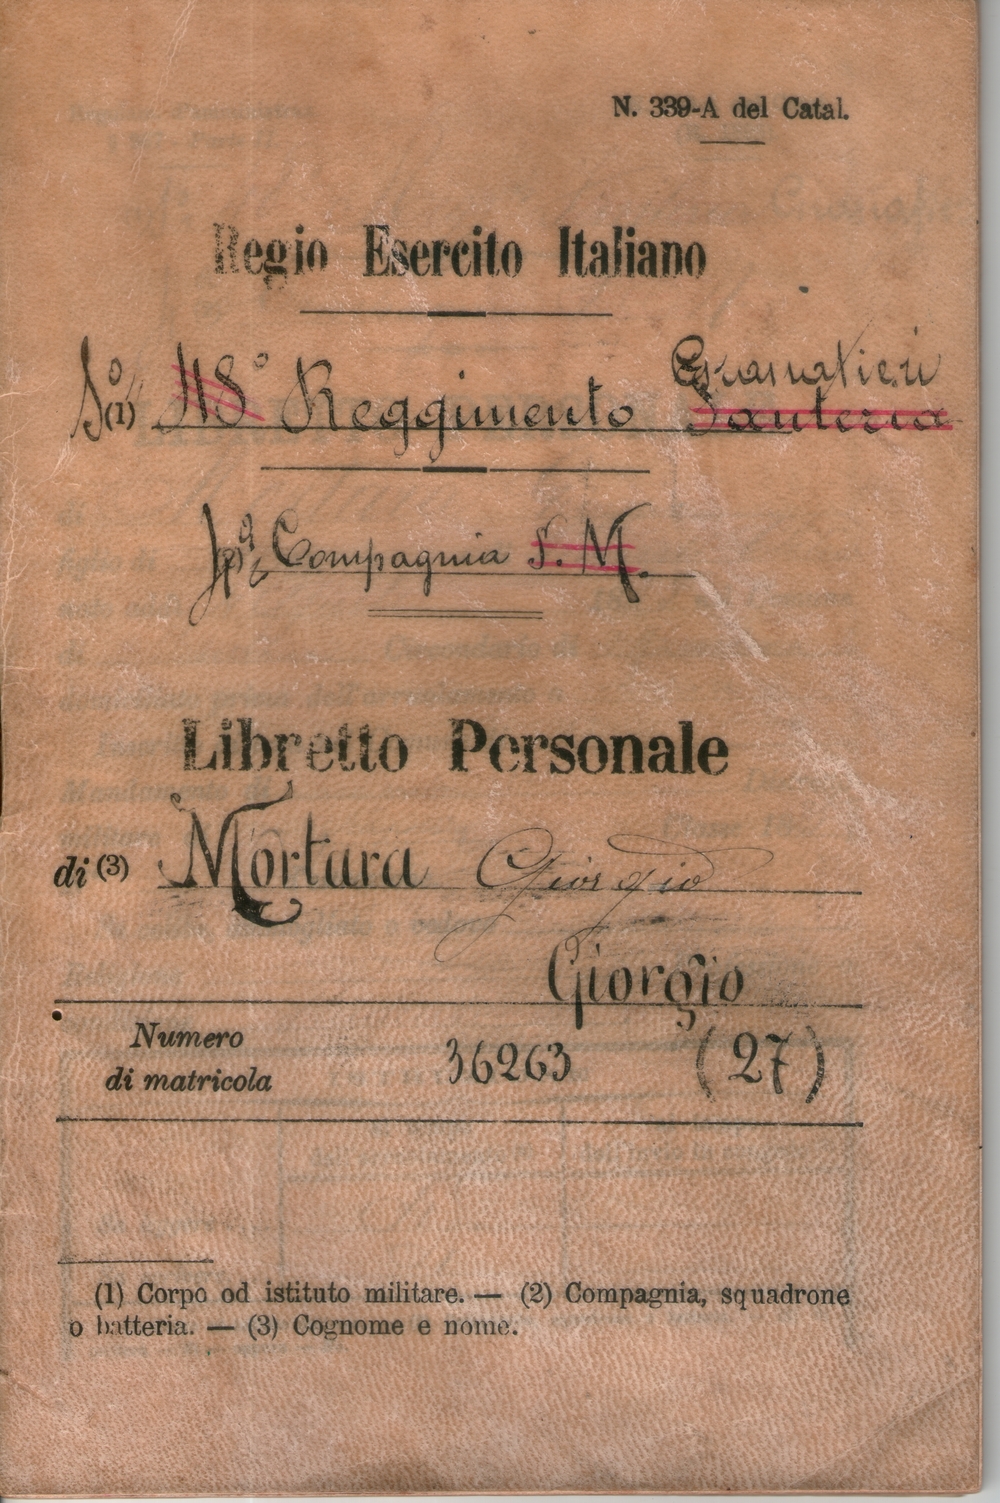 N. 339-A del Catal.
Regio Esercito Italiano
Granatieri
(1) 118° Reggimento Fanteria
(2) Compagnia S. M.
Libretto Personale
di (3) Mortara Giorgio
Giorgio
Numero
di matricola 36263 (27)
(1) Corpo od istituto militare. — (2) Compagnia, squadrone
o batteria. — (3) Cognome e nome.